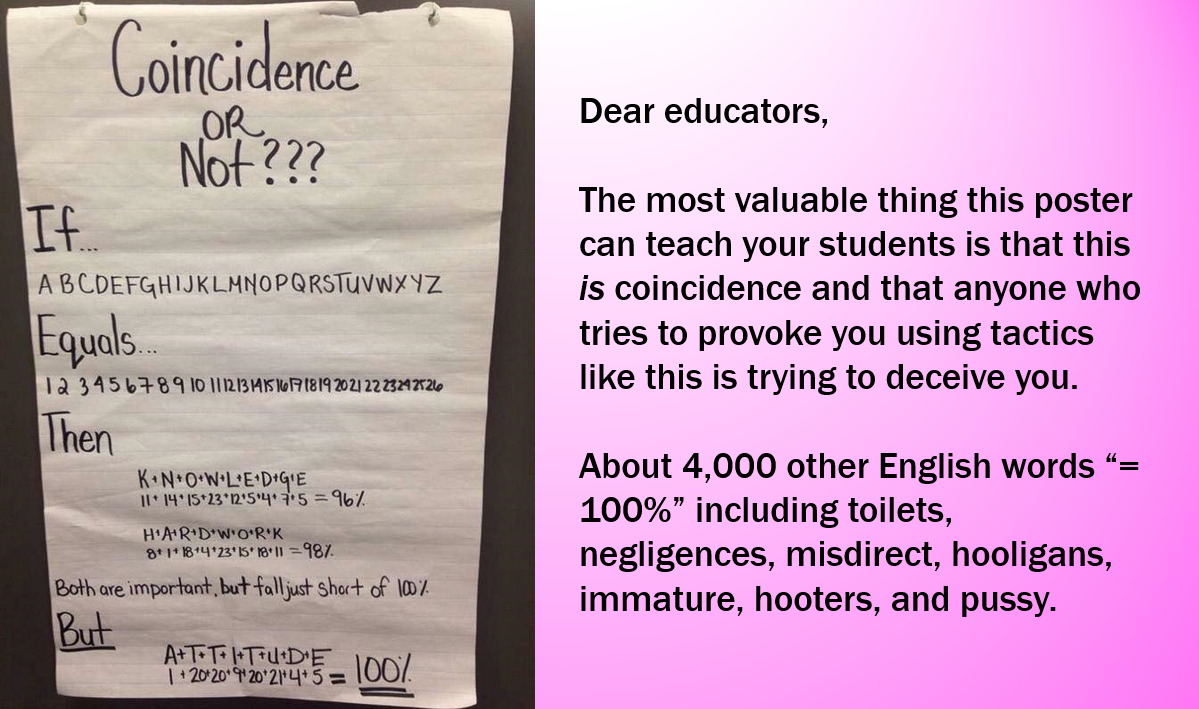 Coincidence
OR
Not???
If...
A B C D E F G H I J K L M N O P Q R S T U V W X Y Z
Equals...
1 2 3 4 5 6 7 8 9 10 11 12 13 14 15 16 17 18 19 20 21 22 23 24 25 26
Then
K+N+O+W+L+E+D+G+E
11+14+15+23+12+5+4+7+5=96%
H+A+R+D+W+O+R+K
8+1+18+4+23+15+18+11=98%
Both are important, but fall just short of 100%.
But
A+T+T+I+T+U+D+E
1+20+20+9+20+21+4+5=100%
Dear educators,
The most valuable thing this poster
can teach your students is that this
is coincidence and that anyone who
tries to provoke you using tactics
like this is trying to deceive you.
About 4,000 other English words “=
100%” including toilets,
negligences, misdirect, hooligans,
immature, hooters, and pussy.